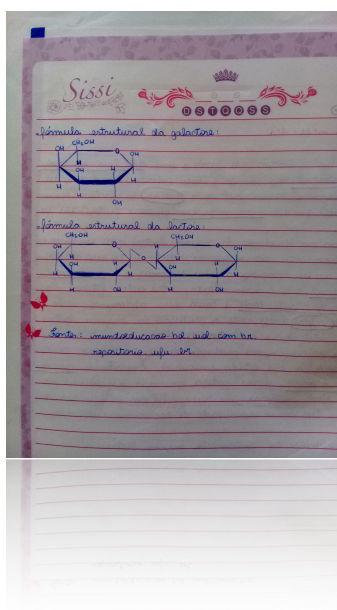 Sissi
D S T Q Q S S
fórmula estrutural da galactose:
CH₂OH
OH O OH
H
OH H
H H
OH
fórmula estrutural da lactose:
CH₂OH CH₂OH
OH O H O OH
H H
OH H O OH H
H H H
H OH H OH
Fontes: mundoeducacao.bol.uol.com.br
repositorio.ufu.br